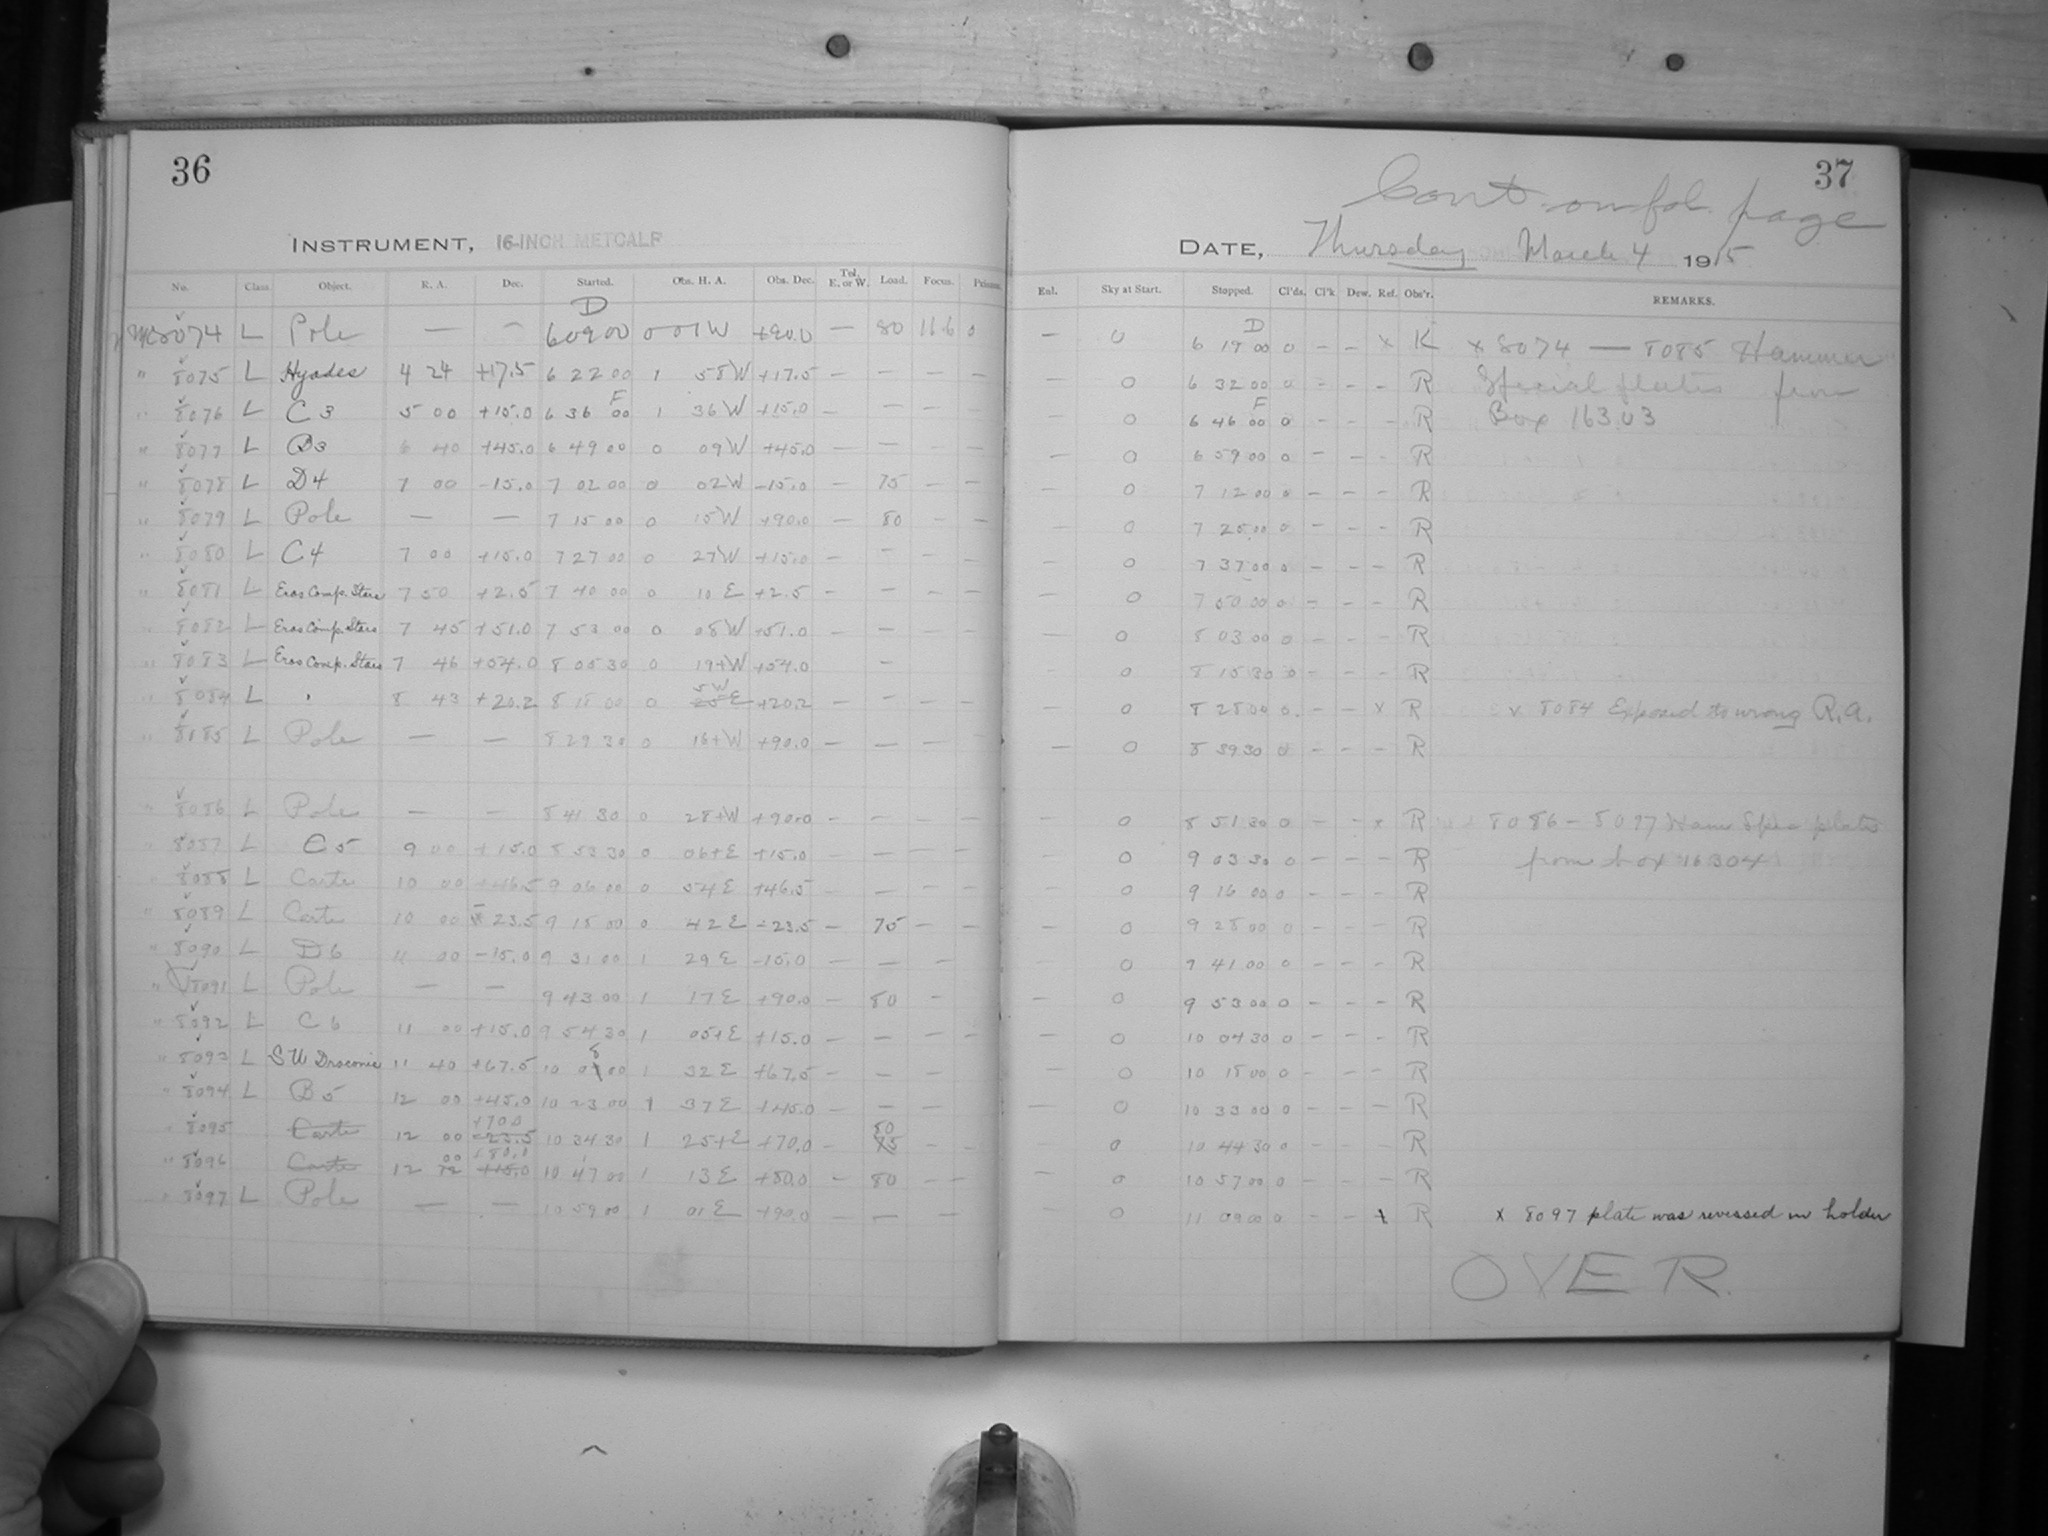 36
INSTRUMENT, 16-INCH METCALF
No. Class Object. R. A. Dec. Started. Obs. H. A. Obs. Dec. Tel. E. or W. Load. Focus. Prisms.
D
MC 8074 L Pole — — 6 09 00 0 07 W +90.0 — 80 11.6 0
" 8075 L Hyades 4 24 +17.5 6 22 00 1 58 W +17.5 — — — —
F
" 8076 L C3 5 00 +15.0 6 36 00 1 36 W +15.0 — — — —
" 8077 L B3 6 40 +45.0 6 49 00 0 09 W +45.0 — — — —
" 8078 L D4 7 00 -15.0 7 02 00 0 02 W -15.0 — 75 — —
" 8079 L Pole — — 7 15 00 0 15 W +90.0 — 80 — —
" 8080 L C4 7 00 +15.0 7 27 00 0 27 W +15.0 — — — —
" 8081 L Eros Comp. Stars 7 50 +2.5 7 40 00 0 10 E +2.5 — — — —
" 8082 L Eros Comp. Stars 7 45 +51.0 7 53 00 0 08 W +51.0 — — — —
" 8083 L Eros Comp. Stars 7 46 +54.0 8 05 30 0 19+W +54.0 —
5 W
" 8084 L 8 43 +20.2 8 18 00 0 25 E +20.2 — — — —
" 8185 L Pole — — 8 29 30 0 16+W +90.0 — — — —
" 8086 L Pole — — 8 41 30 0 28+W +90.0 — — — —
" 8087 L C5 9 00 +15.0 8 53 30 0 06+E +15.0 — — — —
" 8088 L Carte 10 00 +46.5 9 06 00 0 54 E +46.5 — — — —
" 8089 L Carte 10 00 -23.5 9 18 00 0 42 E -23.5 — 75 — —
" 8090 L D6 11 00 -15.0 9 31 00 1 29 E -15.0 — — — —
" 8091 L Pole — — 9 43 00 1 17 E +90.0 — 80 —
" 8092 L C6 11 00 +15.0 9 54 30 1 05+E +15.0 — — — —
8
" 8093 L SU Draconis 11 40 +67.5 10 0 00 1 32 E +67.5 — — — —
" 8094 L B5 12 00 +45.0 10 23 00 1 37 E +45.0 — — —
+70.0 80
" 8095 Carte 12 00 -23.5 10 34 30 1 25+E +70.0 — 75 — —
00 +80.0
" 8096 Carte 12 12 +15.0 10 47 00 1 13 E +80.0 — 80 — —
" 8097 L Pole — — 10 59 00 1 01 E +90.0 — — —
37
Cont. on fol. page
DATE, Thursday March 4 1915
Enl. Sky at Start. Stopped. Cl'ds. Cl'k Dew. Ref. Obs'r. REMARKS.
D
— 0 6 19 00 0 — — x K x 8074 — 8085 Hammer
— 0 6 32 00 0 — — — R Special plates from
F
— 0 6 46 00 0 — — — R Box 16303
— 0 6 59 00 0 — — — R
— 0 7 12 00 0 — — — R
— 0 7 25 00 0 — — — R
— 0 7 37 00 0 — — — R
— 0 7 50 00 0 — — — R
— 0 8 03 00 0 — — — R
— 0 8 15 30 0 — — — R
— 0 8 28 00 0 — — x R x 8084 Exposed to wrong R.A.
— 0 8 39 30 0 — — — R
— 0 8 51 30 0 — — x R 8086 - 8097 Ham Spec plates
— 0 9 03 30 0 — — — R from box 16304
— 0 9 16 00 0 — — — R
— 0 9 28 00 0 — — — R
— 0 9 41 00 0 — — — R
— 0 9 53 00 0 — — — R
— 0 10 04 30 0 — — — R
— 0 10 18 00 0 — — — R
— 0 10 33 00 0 — — — R
— 0 10 44 30 0 — — — R
— 0 10 57 00 0 — — — R
— 0 11 09 00 0 — — x R x 8097 plate was reversed in holder
OVER.